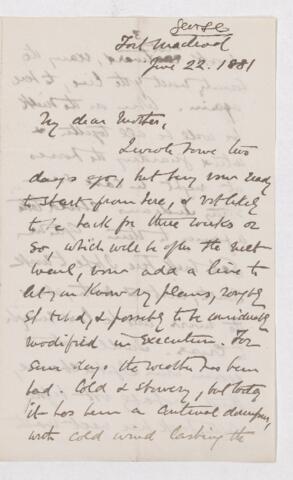 George
Fort Macleod
June 22. 1881
My dear Mother,
I wrote home two
days ago, but being now ready
to start from here, & not likely
to be back for three weeks or
so, which will be after the next
mail, now add a line to
let you know my plans, roughly
stated, & possibly to be considerably
modified in execution. For
some days the weather has been
bad. Cold & showery, but today
it has been a continual downpour,
with cold wind lashing the